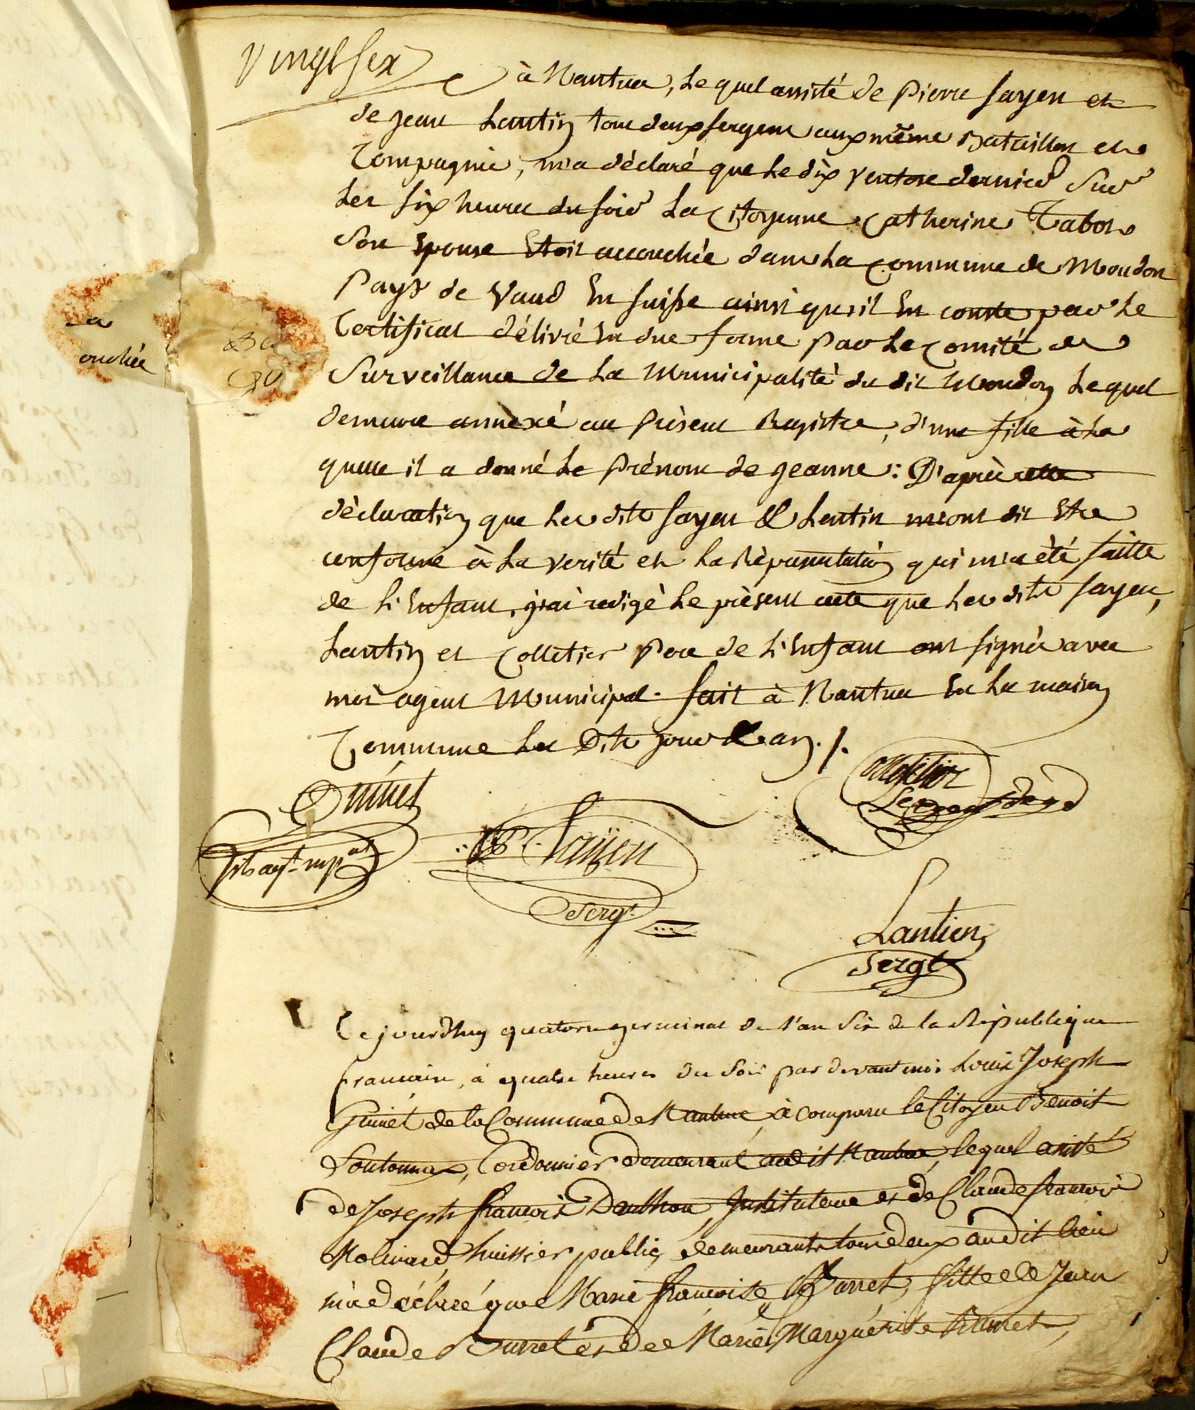 Vingt six
à Nantua, lequel assisté de Pierre Sayen et
de jean Lantin tous deux sergens aux même Bataillon et
Compagnie, m'a déclaré que le dix ventose dernier sur
les six heures du soir la Citoyenne Catherine Tabore
son Epouse Etoit accouchée dans la Commune de Moudon
Pays de Vaud En suisse ainsi qu'il En conste par le
Certificat délivré En due forme par le Comité de
Surveillance de la Municipalité du dit Moudon lequel
demeure annexé au Présent Registre, d'une fille à la
quelle il a donné le Prénom de jeanne : D'après cette
déclaration que les dits Sayen & Lentin m'ont dit Etre
conforme à la verité et la Réprésentation qui m'a été faitte
de l'Enfant, j'ai redigé le présent acte que les dits Sayen,
Lantin et Colletier Pere de l'Enfant ont signés avec
moi agent Municipal. fait à Nantua En la maison
Commune les Dits jour & an ./.
a
ouchée
Guinet
agt. mpal
Sayen
Sergt.
Lantien
Sergt
Cejourdhuy quatorze germinal de l'an Six de la République
francaise, à quatre heures du Soir par devant moi Louis Joseph
Guinet de la Commune de Nantua, à comparu le Citoyen Benoit
Cordonnier demeurant audit Nantua, lequel assisté
de Joseph françois Instituteur et de Claude francois
Molinard, huissier public, demeurants tous deux audit lieu
m'a déclaré que Marie françoise Burret, fille de Jean
Claude Burret et de Marie Marguérite